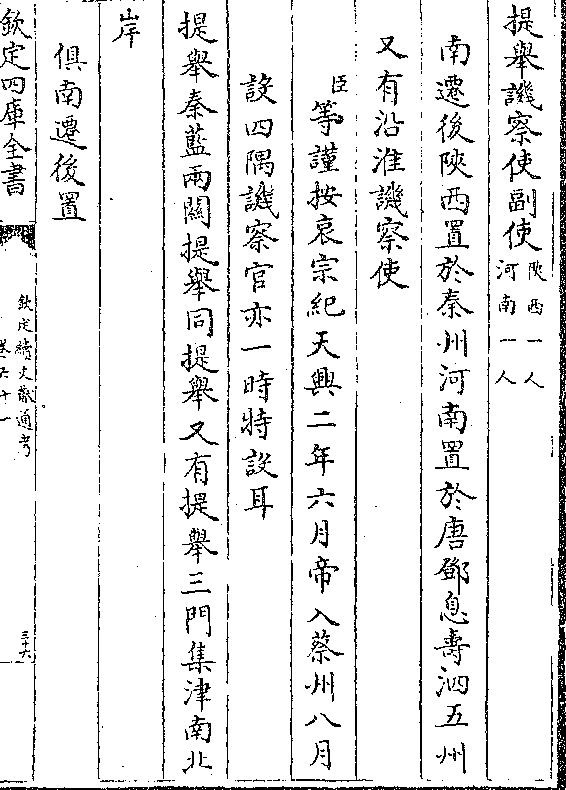 提舉譏察使副使陜西一人河南一人
南遷後陜西置於秦州河南置於唐鄧息壽泗五州
又有沿淮譏察使
臣等謹按哀宗紀天興二年六月帝入蔡州八月
設四隅譏察官亦一時特設耳
提舉秦藍兩關提舉同提舉又有提舉三門集津南北
岸
俱南遷後置
欽定四庫全書
欽定續文獻通考
卷六十一
三十六